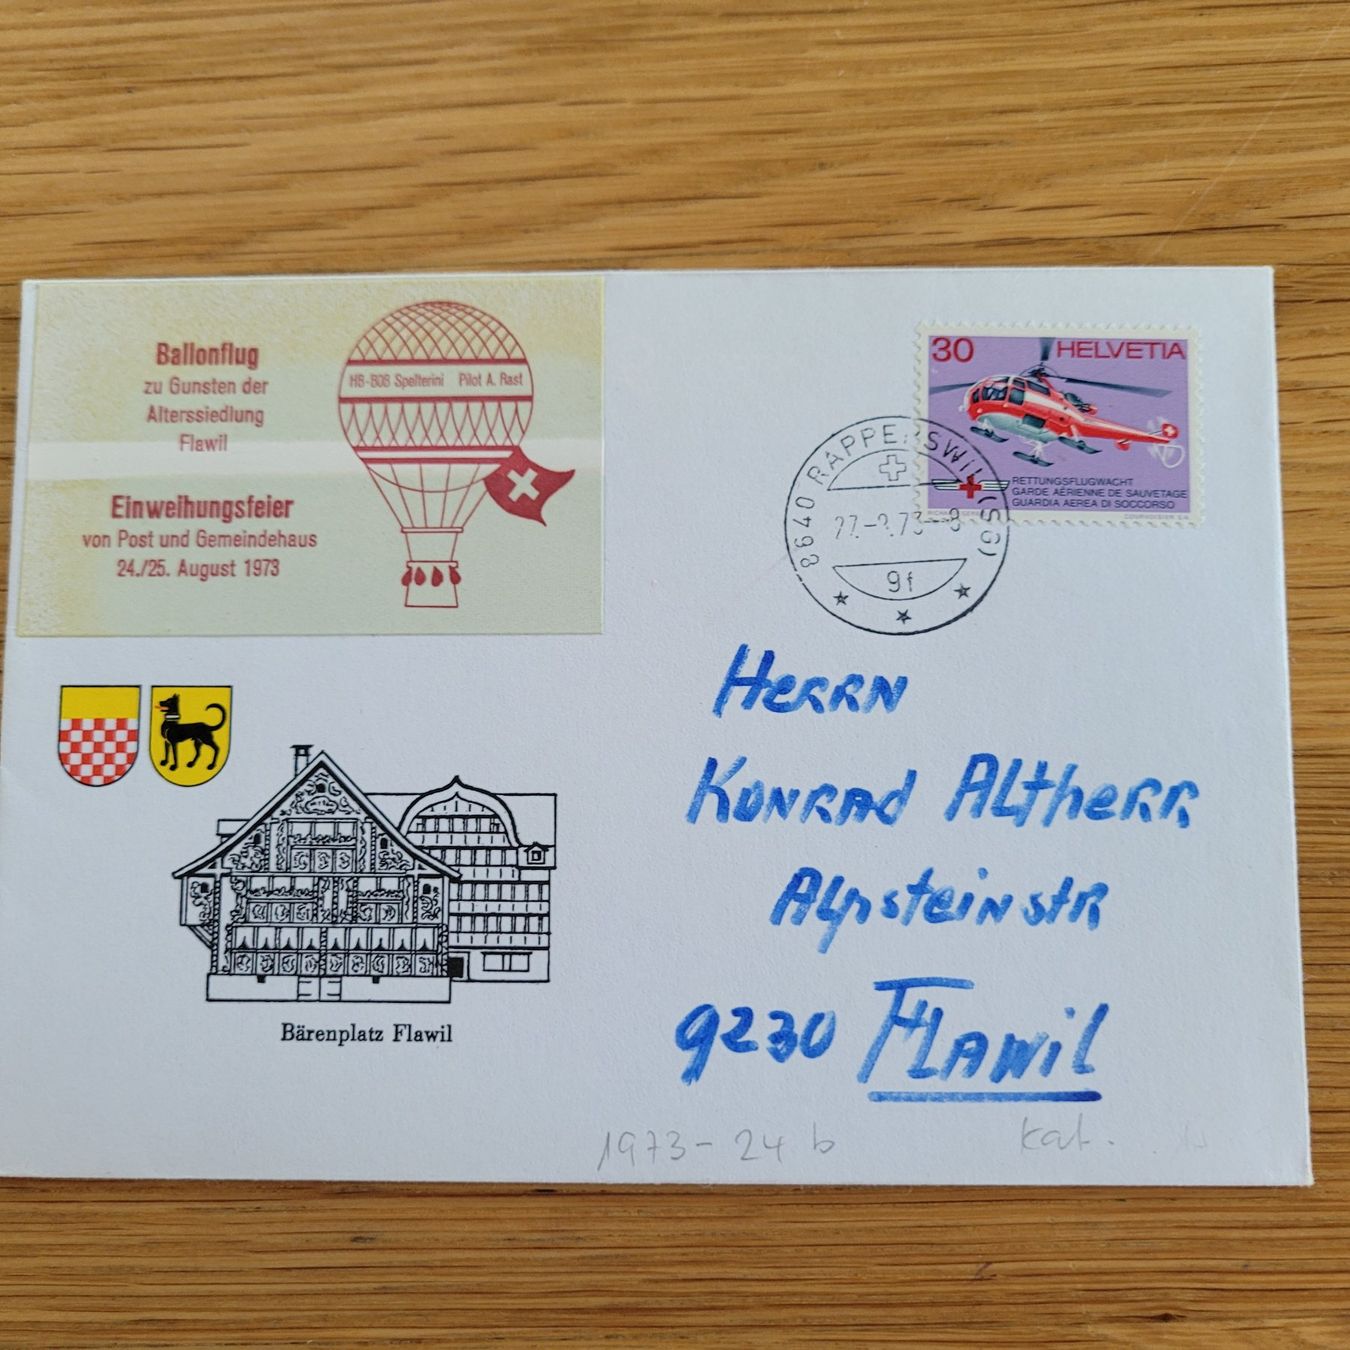 Ballonflug
zu Gunsten der
Alterssiedlung
Flawil
Einweihungsfeier
von Post und Gemeindehaus
24./25. August 1973
HB-BOB Spelterini Pilot A. Rast
30 HELVETIA
RETTUNGSFLUGWACHT
GARDE AÉRIENNE DE SAUVETAGE
GUARDIA AEREA DI SOCCORSO
8640 RAPPERSWIL (SG)
9f
HERRN
KONRAD ALTHERR
ALPSTEINSTR
9230 FLAWIL
Bärenplatz Flawil
1973 - 24 b
Kat.